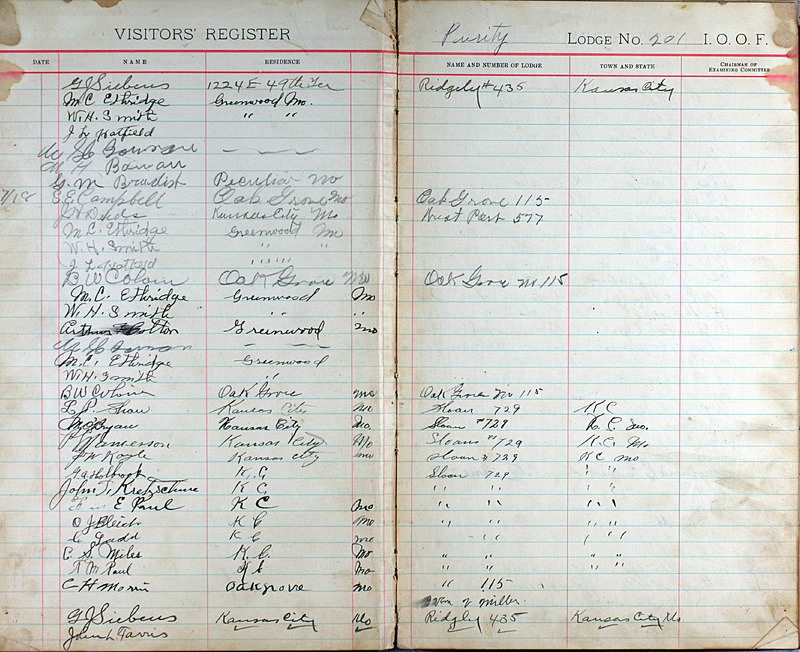 VISITORS' REGISTER
Purity LODGE NO. 201 I. O. O. F.
DATE NAME RESIDENCE NAME AND NUMBER OF LODGE TOWN AND STATE CHAIRMAN OF EXAMINING COMMITTEE
G J Siebens 1224 E 49th Ter Ridgely # 435 Kansas City
M C Ethridge Greenwood Mo.
W. H. Smith " "
J L Hatfield
Bowman — —
Bowman
G. M Peculiar Mo
7/18 E E Campbell Oak Grove Mo Oak Grove 115
Kansas City Mo West Port 577
M. C. Ethridge Greenwood Mo
W. H. Smith " "
J L Hatfield " " " "
B W Colvin Oak Grove Mo Oak Grove No 115
M. C. Ethridge Greenwood Mo
W. H. Smith " "
Arthur Colton Greenwood Mo
Bowman — —
M. C. Ethridge Greenwood
W. H. Smith "
B W Colvin Oak Grove Mo Oak Grove No 115
L. P. Shaw Kansas City Mo Sloan 729 K C
Kansas City Mo. Sloan # 729 K. C. Mo.
Kansas City Mo Sloans # 729 K. C. Mo
Kansas City Mo Sloan # 729 KC Mo
K. C Sloan 729 " "
John T. Kretzschme K C " " " "
E Paul K C Mo " " " "
O J Bleich K C Mo " " " "
C Ladd K C Mo " "
E. S. Miles K. C. Mo " " " "
T. M. Paul K C Mo " " " "
C H Morris Oakgrove Mo " 115
Miller
G J Siebens Kansas City Mo Ridgely 435 Kansas City Mo
John L Farris